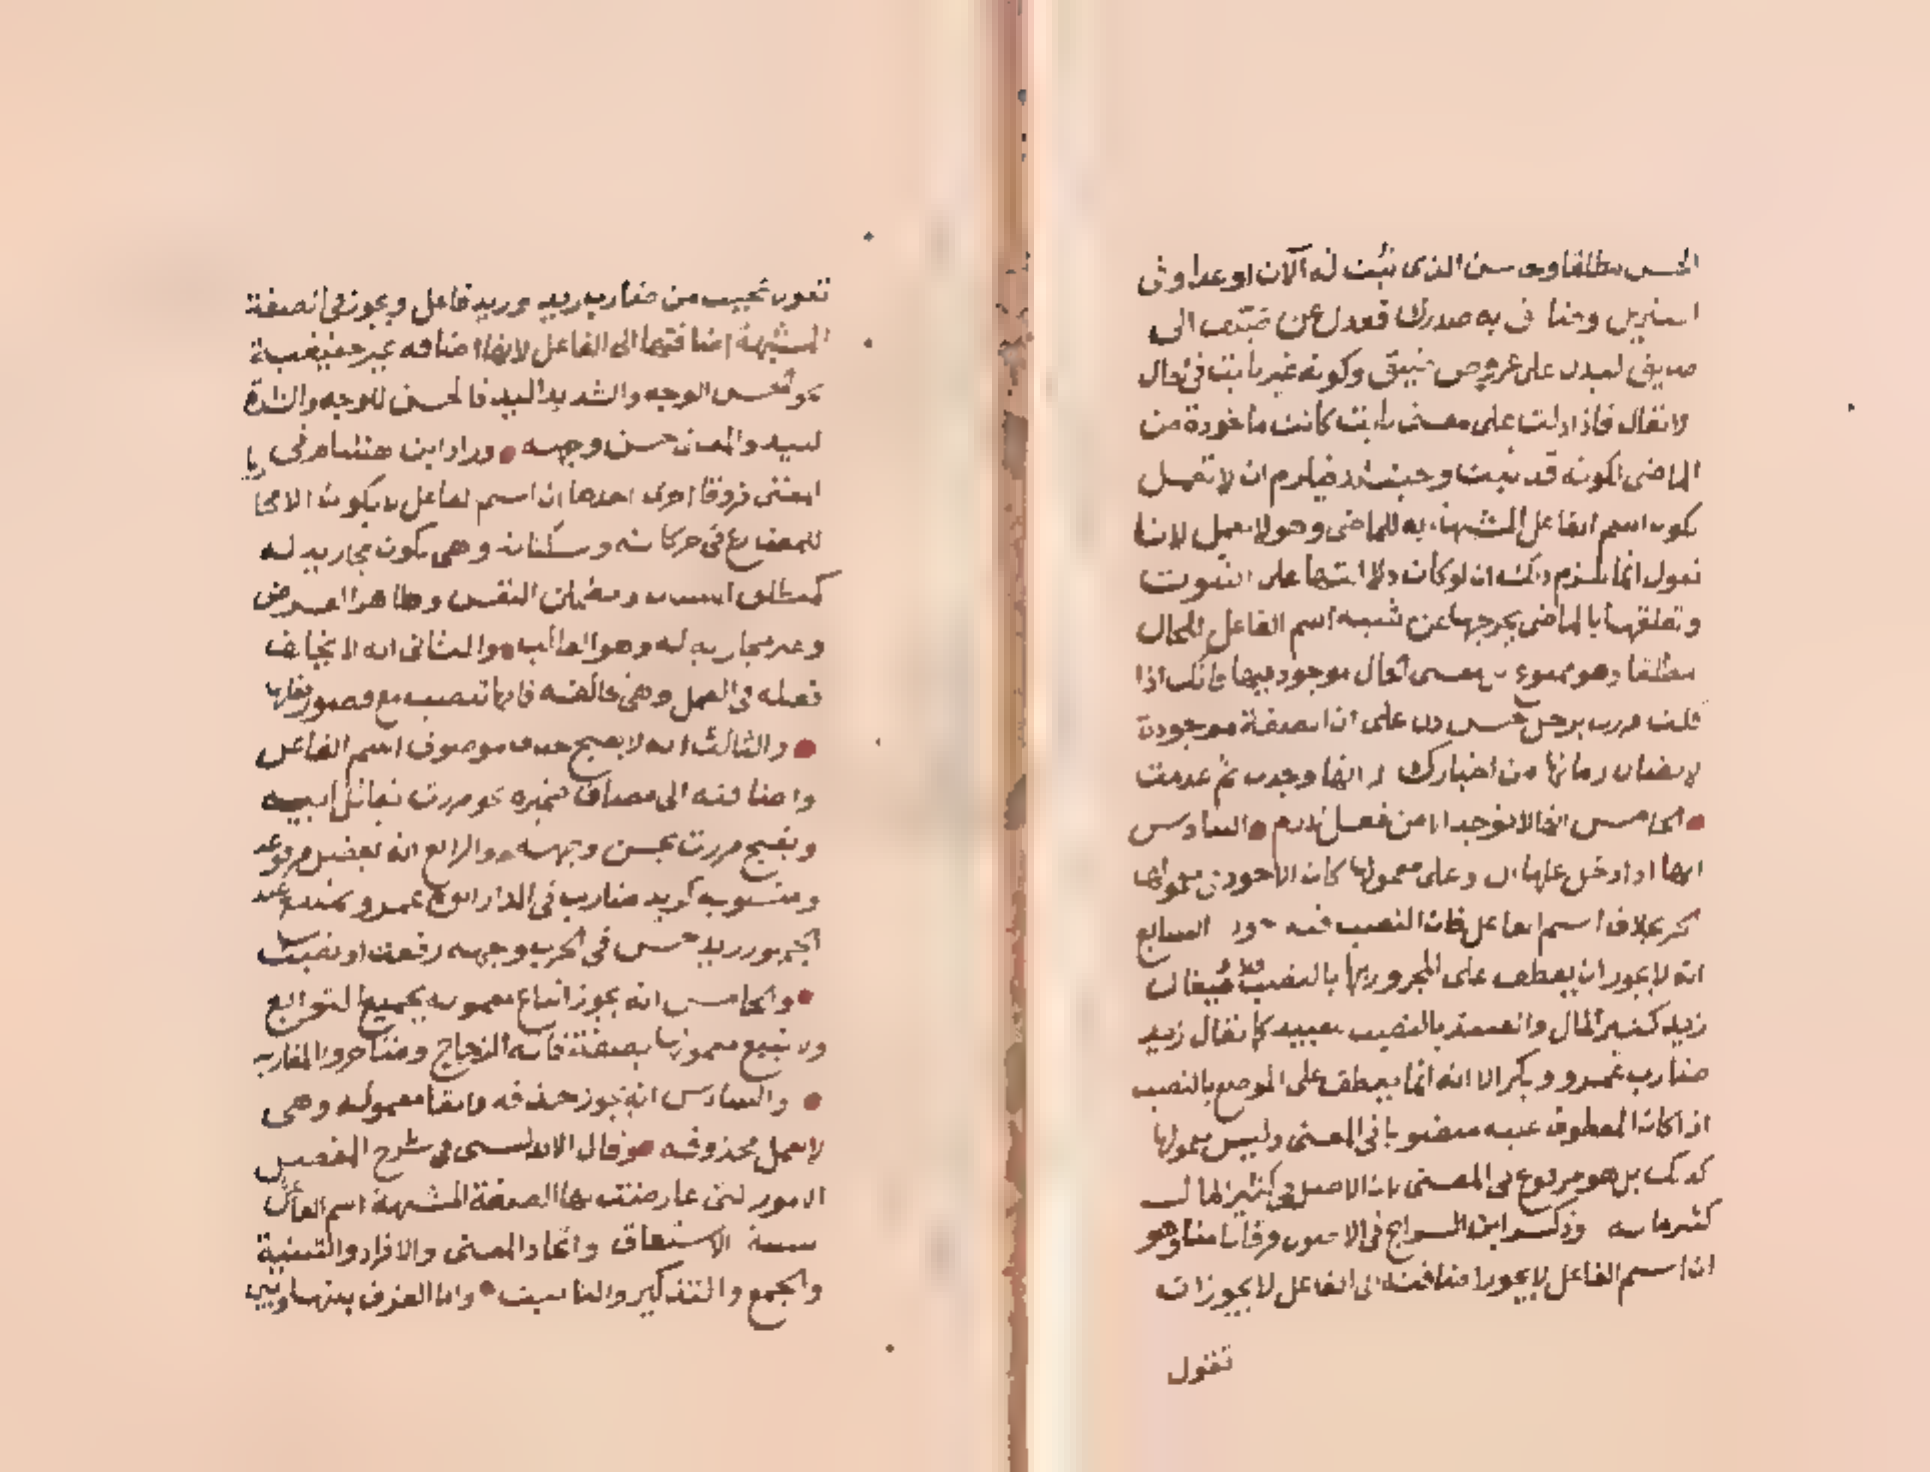 الحسن مطلقا وحسن الذى ثبت له الآن او غدا وفى
التنزيل وضائق به صدرك فعدل عن ضيق الى
ضايق ليدل على عروض ضيق وكونه غير ثابت فى الحال
لا يقال فاذا دلت على معنى ثابت كانت ماخوذة من
الماضى لكونه قد ثبت وحينئذ فيلزم ان لا تعمل
لكون اسم الفاعل المشبهة به للماضى وهو لا يعمل لانا
نقول انما يلزم ذلك ان لو كان دلالتها على الثبوت
وتعلقها بالماضى يخرجها عن شبه اسم الفاعل للحال
مطلقا وهو ممنوع معنى الحال موجود فيها فانك اذا
قلت مررت برجل حسن دل على ان الصفة موجودة
لاتصال زمانها من اخبارك لا انها وجدت ثم عدمت
الخامس انها لا توجد الا من فعل لازم والسادس
انها اذا دخل عليها ال وعلى معمولها كان الاجود فى معمولها
الجر بخلاف اسم الفاعل فان النصب فيه اجود السابع
انه لا يجوز ان يعطف على المجرور بها بالنصب فلا يقال
زيد كثير المال والعبيد بالنصب كما يقال زيد
ضارب عمرو وبكرا لانه انما يعطف على الموضع بالنصب
اذا كان المعطوف عليه منصوبا فى المعنى وليس معمولها
كذلك بل هو مرفوع فى المعنى لان الاصل فى كثير المال
كثير ماله وذكر ابن السراج فى الاصول فرقا ثامنا وهو
ان اسم الفاعل لا يجوز اضافته الى الفاعل لا يجوز ان
تقول
تقول عجبت من ضارب زيد وزيد فاعل ويجوز فى الصفة
المشبهة اضافتها الى الفاعل لانها اضافة غير حقيقية
نحو الحسن الوجه والشديد اليد فالحسن للوجه والشدة
لليد والمعنى حسن وجهه وزاد ابن هشام فى
المغنى فروقا اخرى احدها ان اسم الفاعل لا يكون الا مجاريا
للمضارع فى حركاته وسكناته وهى تكون مجارية له
كمنطلق اللسان ومطمئن النفس وطاهر العرض
وغير مجارية له وهو الغالب والثانى انه لا يخالف
فعله فى العمل وهى مخالفته فانها تنصب مع قصور فعلها
والثالث انه لا يصح حذف موصوف اسم الفاعل
واضافته الى مضاف ضميره نحو مررت بقاتل ابيه
ويقبح مررت بحسن وجهه والرابع انه يفصل مرفوعه
ومنصوبه كزيد ضارب فى الدار ابوه عمرو ويمتنع عند
الجمهور زيد حسن فى الحرب وجهه رفعت او نصبت
والخامس انه يجوز اتباع معموله بجميع التوابع
ولا يتبع معمولها بصفة قاله الزجاج ومتاخروا المغاربة
والسادس انه يجوز حذفه وابقا معموله وهى
لا تعمل محذوفة وقال الاندلسى فى شرح المفصل
الامور التى عارضت بها الصفة المشبهة اسم الفاعل
ستة الاشتقاق واتحاد المعنى والافراد والتثنية
والجمع والتذكير والتانيث واما الفرق بينها وبين